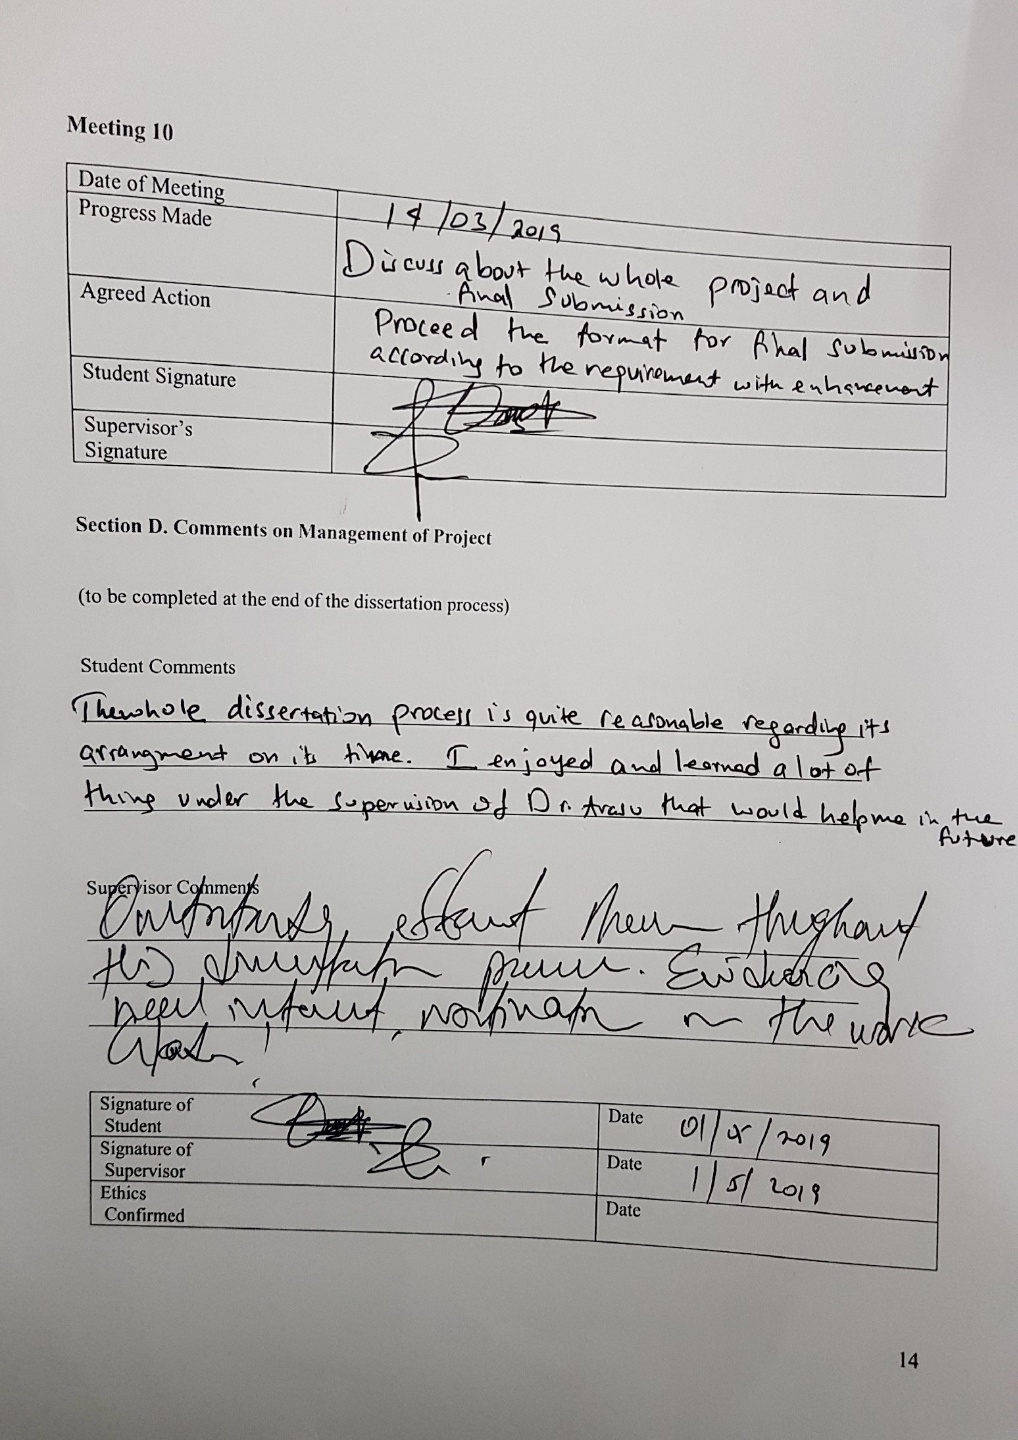 Meeting 10
Date of Meeting
14/03/2019
Progress Made
Discuss about the whole project and
final submission
Agreed Action
Proceed the format for final submission
according to the requirement with enhancement
Student Signature
Supervisor's
Signature
Section D. Comments on Management of Project
(to be completed at the end of the dissertation process)
Student Comments
The whole dissertation process is quite reasonable regarding its
arrangment on its time. I enjoyed and learned a lot of
thing under the supervision of Dr. Arasu that would help me in the
future
Supervisor Comments
effort
this dissertation process.
on the work
Signature of
Student
Date 01/05/2019
Signature of
Supervisor
Date 1/5/2019
Ethics
Confirmed
Date
14